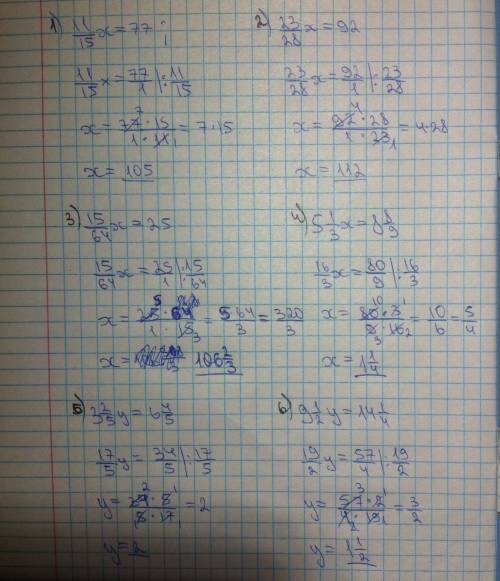 1) 11/15 x = 77
11/15 x = 77/1 |: 11/15
x = 77 7 · 15 / 1 · 11 1 = 7·15
x = 105
2) 23/28 x = 92
23/28 x = 92/1 |: 23/28
x = 92 4 · 28 / 1 · 23 1 = 4·28
x = 112
3) 15/64 x = 25
15/64 x = 25/1 |: 15/64
x = 25 5 · 64 / 1 · 15 3 = 5 64/3 = 320/3
x = 106 2/3
4) 5 1/3 x = 8 8/9
16/3 x = 80/9 |: 16/3
x = 80 10 · 3 1 / 9 3 · 16 2 = 10/6 = 5/4
x = 1 1/4
5) 3 2/5 y = 6 4/5
17/5 y = 34/5 |: 17/5
y = 34 2 · 5 1 / 5 · 17 1 = 2
y = 2
6) 9 1/2 y = 14 1/4
19/2 y = 57/4 |: 19/2
y = 57 3 · 2 1 / 4 2 · 19 1 = 3/2
y = 1 1/2